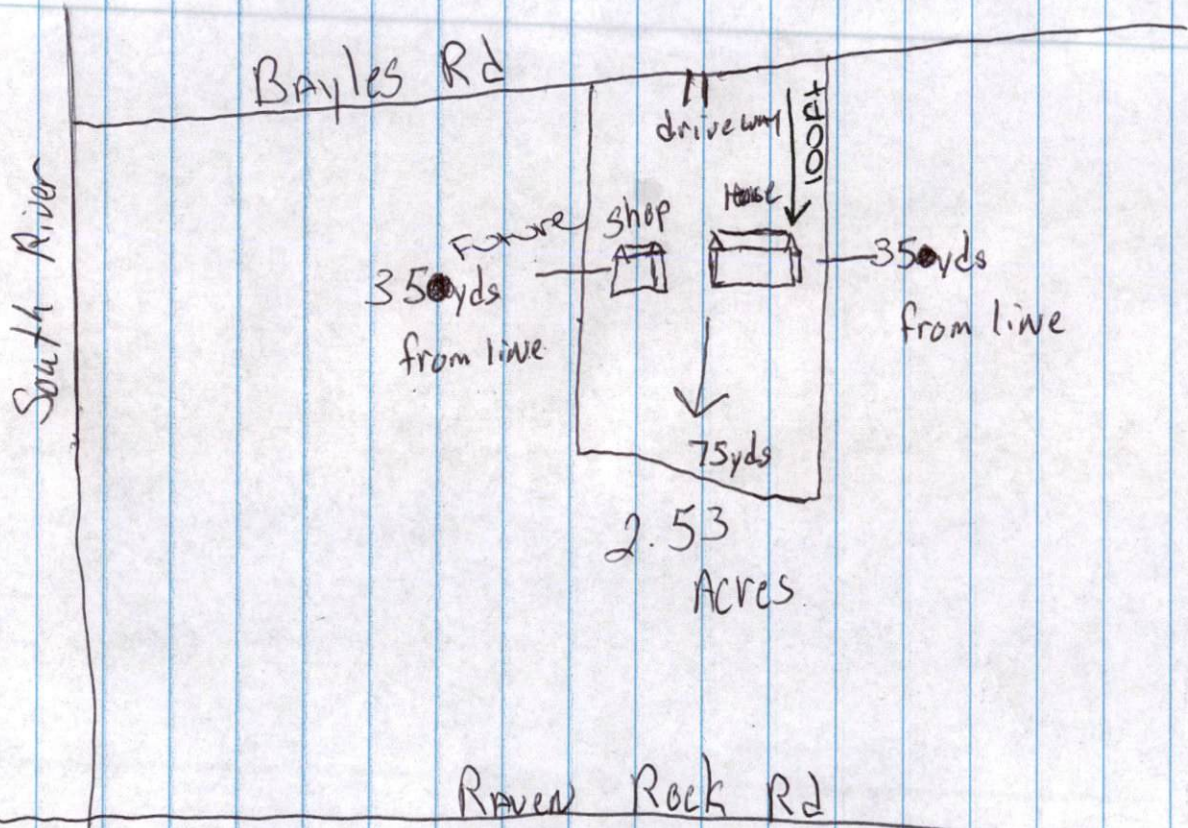 Bayles Rd
South River
driveway
100ft
House
Future
Shop
35 yds
from line
35 yds
from line
75yds
2.53
Acres
Raven Rock Rd